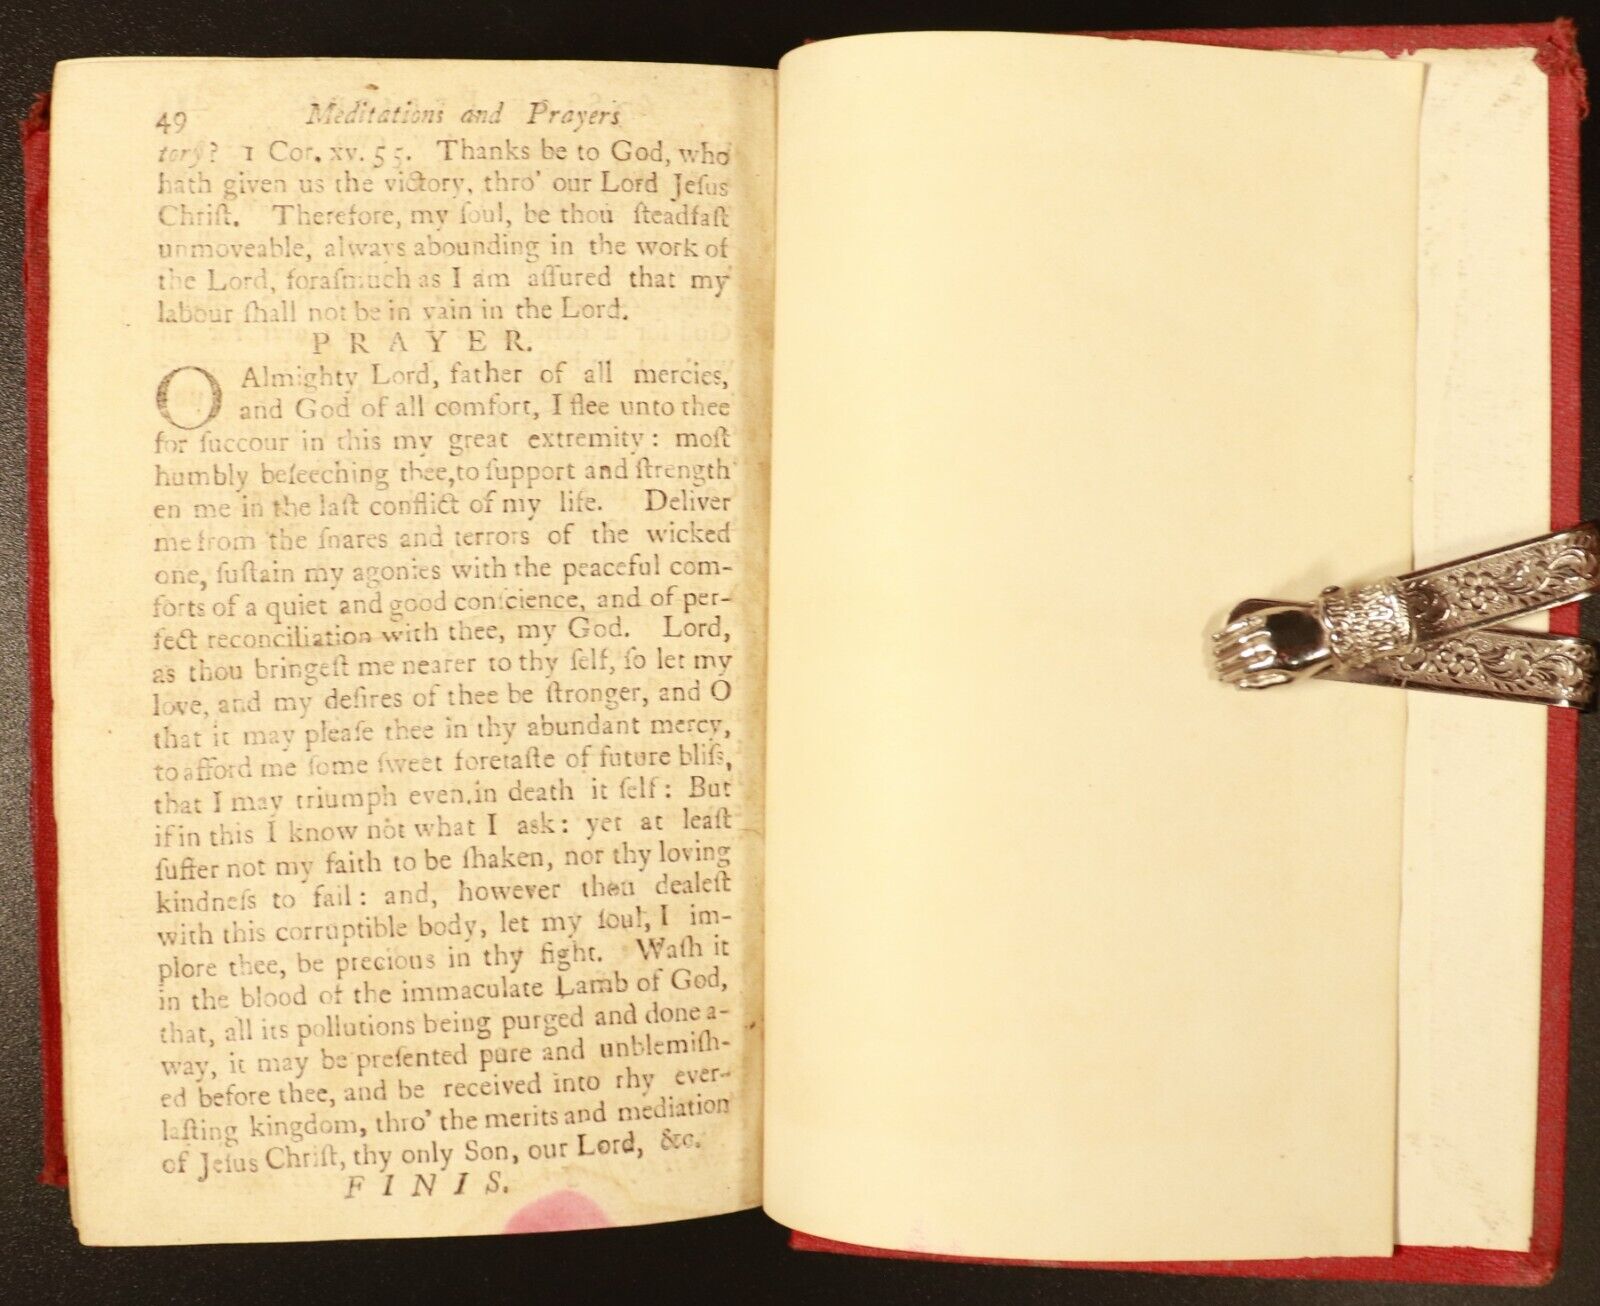 49 Meditations and Prayers
tory? 1 Cor. xv. 55. Thanks be to God, who
hath given us the victory, thro' our Lord Jeſus
Chriſt. Therefore, my ſoul, be thou ſteadfaſt
unmoveable, always abounding in the work of
the Lord, foraſmuch as I am aſſured that my
labour ſhall not be in vain in the Lord.
PRAYER.
O Almighty Lord, father of all mercies,
and God of all comfort, I flee unto thee
for ſuccour in this my great extremity: moſt
humbly beſeeching thee,to ſupport and ſtrength
en me in the laſt conflict of my life. Deliver
me from the ſnares and terrors of the wicked
one, ſuſtain my agonies with the peaceful com-
forts of a quiet and good conſcience, and of per-
fect reconciliation with thee, my God. Lord,
as thou bringeſt me nearer to thy ſelf, ſo let my
love, and my deſires of thee be ſtronger, and O
that it may pleaſe thee in thy abundant mercy,
to afford me ſome ſweet foretaſte of future bliſs,
that I may triumph even.in death it ſelf: But
if in this I know not what I ask: yet at leaſt
ſuffer not my faith to be ſhaken, nor thy loving
kindneſs to fail: and, however thou dealeſt
with this corruptible body, let my ſoul, I im-
plore thee, be precious in thy ſight. Waſh it
in the blood of the immaculate Lamb of God,
that, all its pollutions being purged and done a-
way, it may be preſented pure and unblemiſh-
ed before thee, and be received into thy ever-
laſting kingdom, thro' the merits and mediation
of Jeſus Chriſt, thy only Son, our Lord, &c.
FINIS.